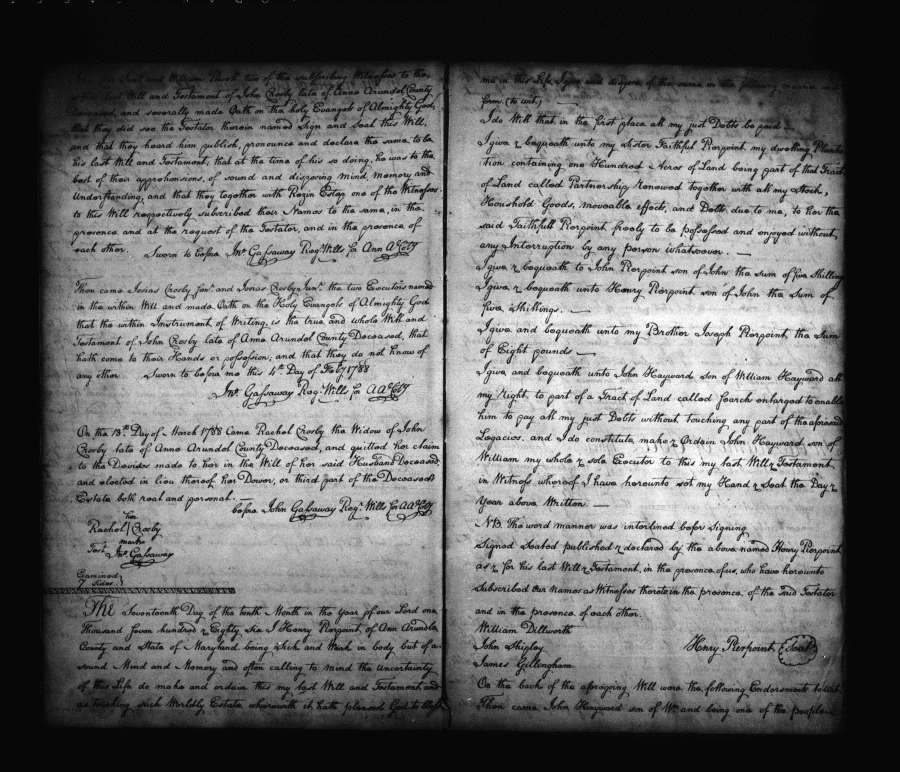 and William Pumph two of the subscribing Witnesses to the
last Will and Testament of John Crosby late of Anne Arundel County
Deceased, and severally made Oath on the holy Evangels of Almighty God,
that they did see the Testator herein named Sign and Seal this Will,
and that they heard him publish, pronounce and declare the same to be
his last Will and Testament, that at the time of his so doing, he was to the
best of their apprehensions, of sound and disposing mind, memory and
Understanding, and that they together with Rezin Estep one of the Witnesses
to this Will respectively subscribed their Names to the same, in the
presence and at the request of the Testator, and in the presence of
each other. Sworn to before Jno. Gassaway Regr. Wills for Ann Al. Coty
Then came Josias Crosby Senr. and Josias Crosby Junr. the two Executors named
in the within Will and made Oath on the Holy Evangels of Almighty God
that the within Instrument of Writing is the true and whole Will and
Testament of John Crosby late of Anne Arundel County Deceased, that
hath come to their Hands or possession; and that they do not know of
any other. Sworn to before me this 4th. Day of Feby. 1788
Jno. Gassaway Regr. Wills for AAl. Coty
On the 13th. Day of March 1788 Came Rachel Crosby the Widow of John
Crosby late of Anne Arundel County Deceased, and quitted her claim
to the Devises made to her in the Will of her said Husband Deceased,
and elected in lieu thereof her Dower, or third part of the Deceased's
Estate both real and personal.
before John Gassaway Regr. Wills for AAl. Coty
her
Rachel / Crosby
marke
Test. Jno. Gassaway
Examined
7 Sides
The Seventeenth Day of the tenth Month in the Year of our Lord one
Thousand Seven hundred & Eighty Six I Henry Pierpoint, of Ann Arundle
County and State of Maryland being Sick and Weak in body but of a
sound Mind and Memory and often calling to mind the Uncertainty
of this Life do make and ordain this my last Will and Testament, and
as touching such Worldly Estate wherewith it hath pleased God to bless
me in this Life I give and dispose of the same in the following manner and
form (to wit)
I do Will that in the first place all my just Debts be paid
I give & bequeath unto my Sister Faithful Pierpoint my dwelling Planta
tion containing one Hundred Acres of Land being part of that Tract
of Land called Partnership renewed together with all my Stock,
Houshold Goods, moveable effects, and Debts due to me, to her the
said Faithfull Pierpoint freely to be possessed and enjoyed without
any Interruption by any person whatsoever.
I give & bequeath to John Pierpoint son of John the sum of five Shillings
I give & bequeath unto Henry Pierpoint son of John the Sum of
five Shillings.
I give and bequeath unto my Brother Joseph Pierpoint, the Sum
of Eight pounds
I give, and bequeath unto John Hayward son of William Hayward all
my Right to part of a Tract of Land called Search enlarged to enable
him to pay all my just Debts without touching any part of the aforesaid
Legacies, and I do constitute make & Ordain John Hayward son of
William my whole & sole Executor to this my last Will & Testament
in Witness whereof I have hereunto set my Hand & Seal the Day &
Year above Written.
NB. The word manner was interlined before Signing
Signed Sealed published & declared by the above named Henry Pierpoint
as & for his last Will & Testament, in the presence of us, who have hereunto
Subscribed Our names as Witnesses thereto in the presence of the Said Testator
and in the presence of each other.
William Dillworth
John Shipley Henry Pierpoint Seal
James Gillingham
On the back of the aforegoing Will were the following Endorsments to Wit.
Then came John Hayward son of Wm. and being one of the people